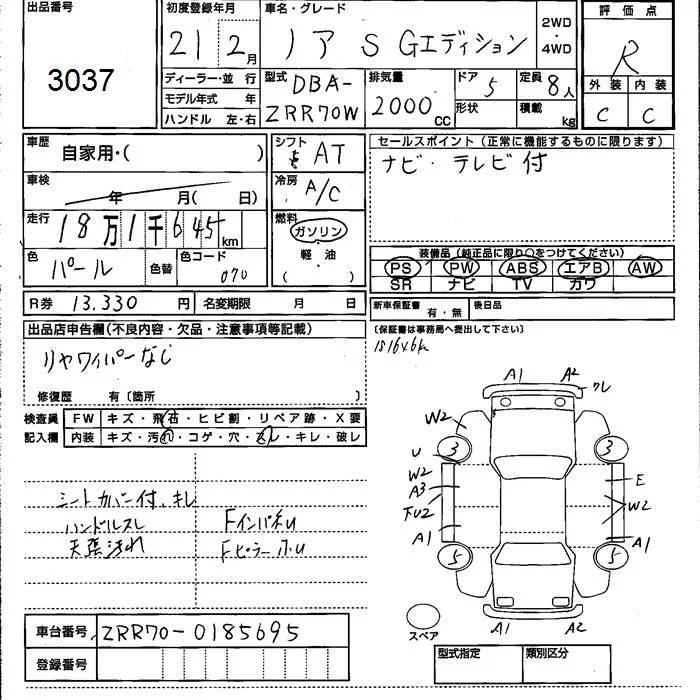 出品番号
3037
初度登録年月
21 2月
車名・グレード
ノア S Gエディション
2WD・4WD
評価点
R
外装 内装
C C
ディーラー・並 行
モデル年式 年
ハンドル 左・右
型式 DBA-
ZRR70W
排気量
2000cc
ドア 5
形状
定員 8人
積載 kg
車歴 自家用・( )
シフト
AT
セールスポイント (正常に機能するものに限ります)
ナビ・テレビ付
車検 年 月( 日)
冷房
A/C
走行 18万1千645km
燃料
ガソリン
軽・油
( )
色 パール
色替
色コード
070
装備品 (純正品に限り○をつけてください)
PS PW ABS エアB AW
SR ナビ TV カワ
R券 13.330円
名変期限 月 日
新車保証書 有・無
後日品
(保証書は事務局へ提出して下さい)
出品店申告欄(不良内容・欠品・注意事項等記載)
リヤワイパーなし
修復歴 有〔箇所 〕
検査員記入欄
FW キズ・飛石・ヒビ割・リペア跡・X要
内装 キズ・汚れ・コゲ・穴・スレ・キレ・破レ
シートカバー付、キレ
ハンドルスレ
天張汚れ
A1 A2
ワレ
W2
3 3
U
W2
A3
A1
E
W2
A1
5 5
スペア
A1 A2
車台番号 ZRR70-0185695
登録番号
型式指定 類別区分